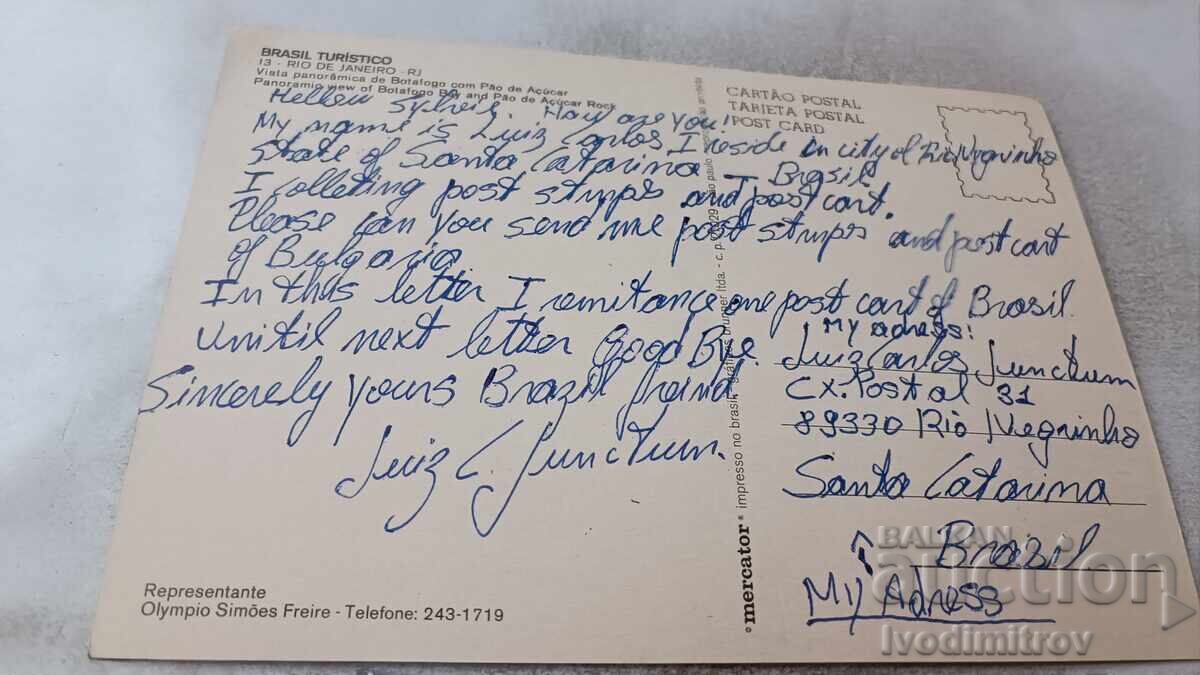 BRASIL TURÍSTICO
13 - RIO DE JANEIRO - RJ
Vista panorâmica de Botafogo com Pão de Açúcar
Panoramic view of Botafogo Bay and Pão de Açúcar Rock
CARTÃO POSTAL
TARJETA POSTAL
POST CARD
Sylvie. How are you!
My name is Luiz Carlos I reside in city of Rio Negrinho
State of Santa Catarina - Brasil
I colleting post stmps and post cart.
Please can you send me post stmps and post cart
of Bulgaria
In this letter I remitance one post cart of Brasil.
Unitil next letter Good Bye.
Sincerely yours Brazil friand
Luiz C. Junctum.
My adress:
Luiz Carlos Junctum
Cx. Postal 31
89330 Rio Negrinho
Santa Catarina
Brazil
My Adress
Representante
Olympio Simões Freire - Telefone: 243-1719
mercator impresso no brasil - gráficos brunner ltda. - c.p. são paulo
BALKAN
auction
Ivodimitrov